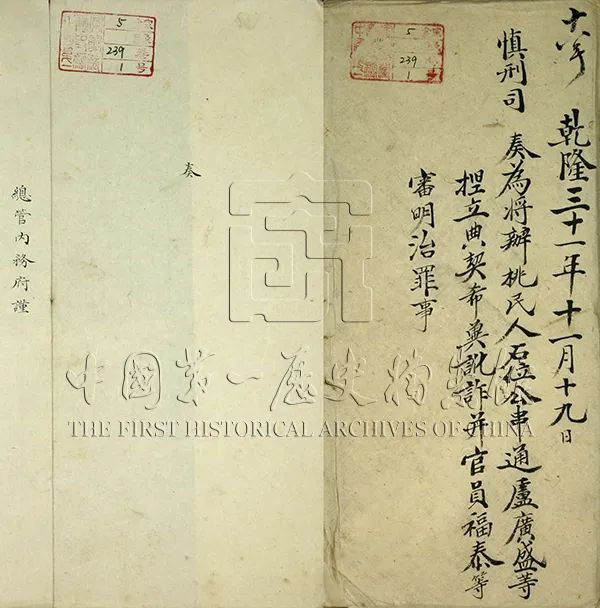 乾隆三十一年十一月十九日
慎刑司 奏為將辦桃民人石位公串通盧廣盛等
捏立典契希冀訛詐并官員福泰等
審明治罪事
5
239
1
奏
5
239
1
總管內務府謹
中國第一歷史檔案館
THE FIRST HISTORICAL ARCHIVES OF CHINA